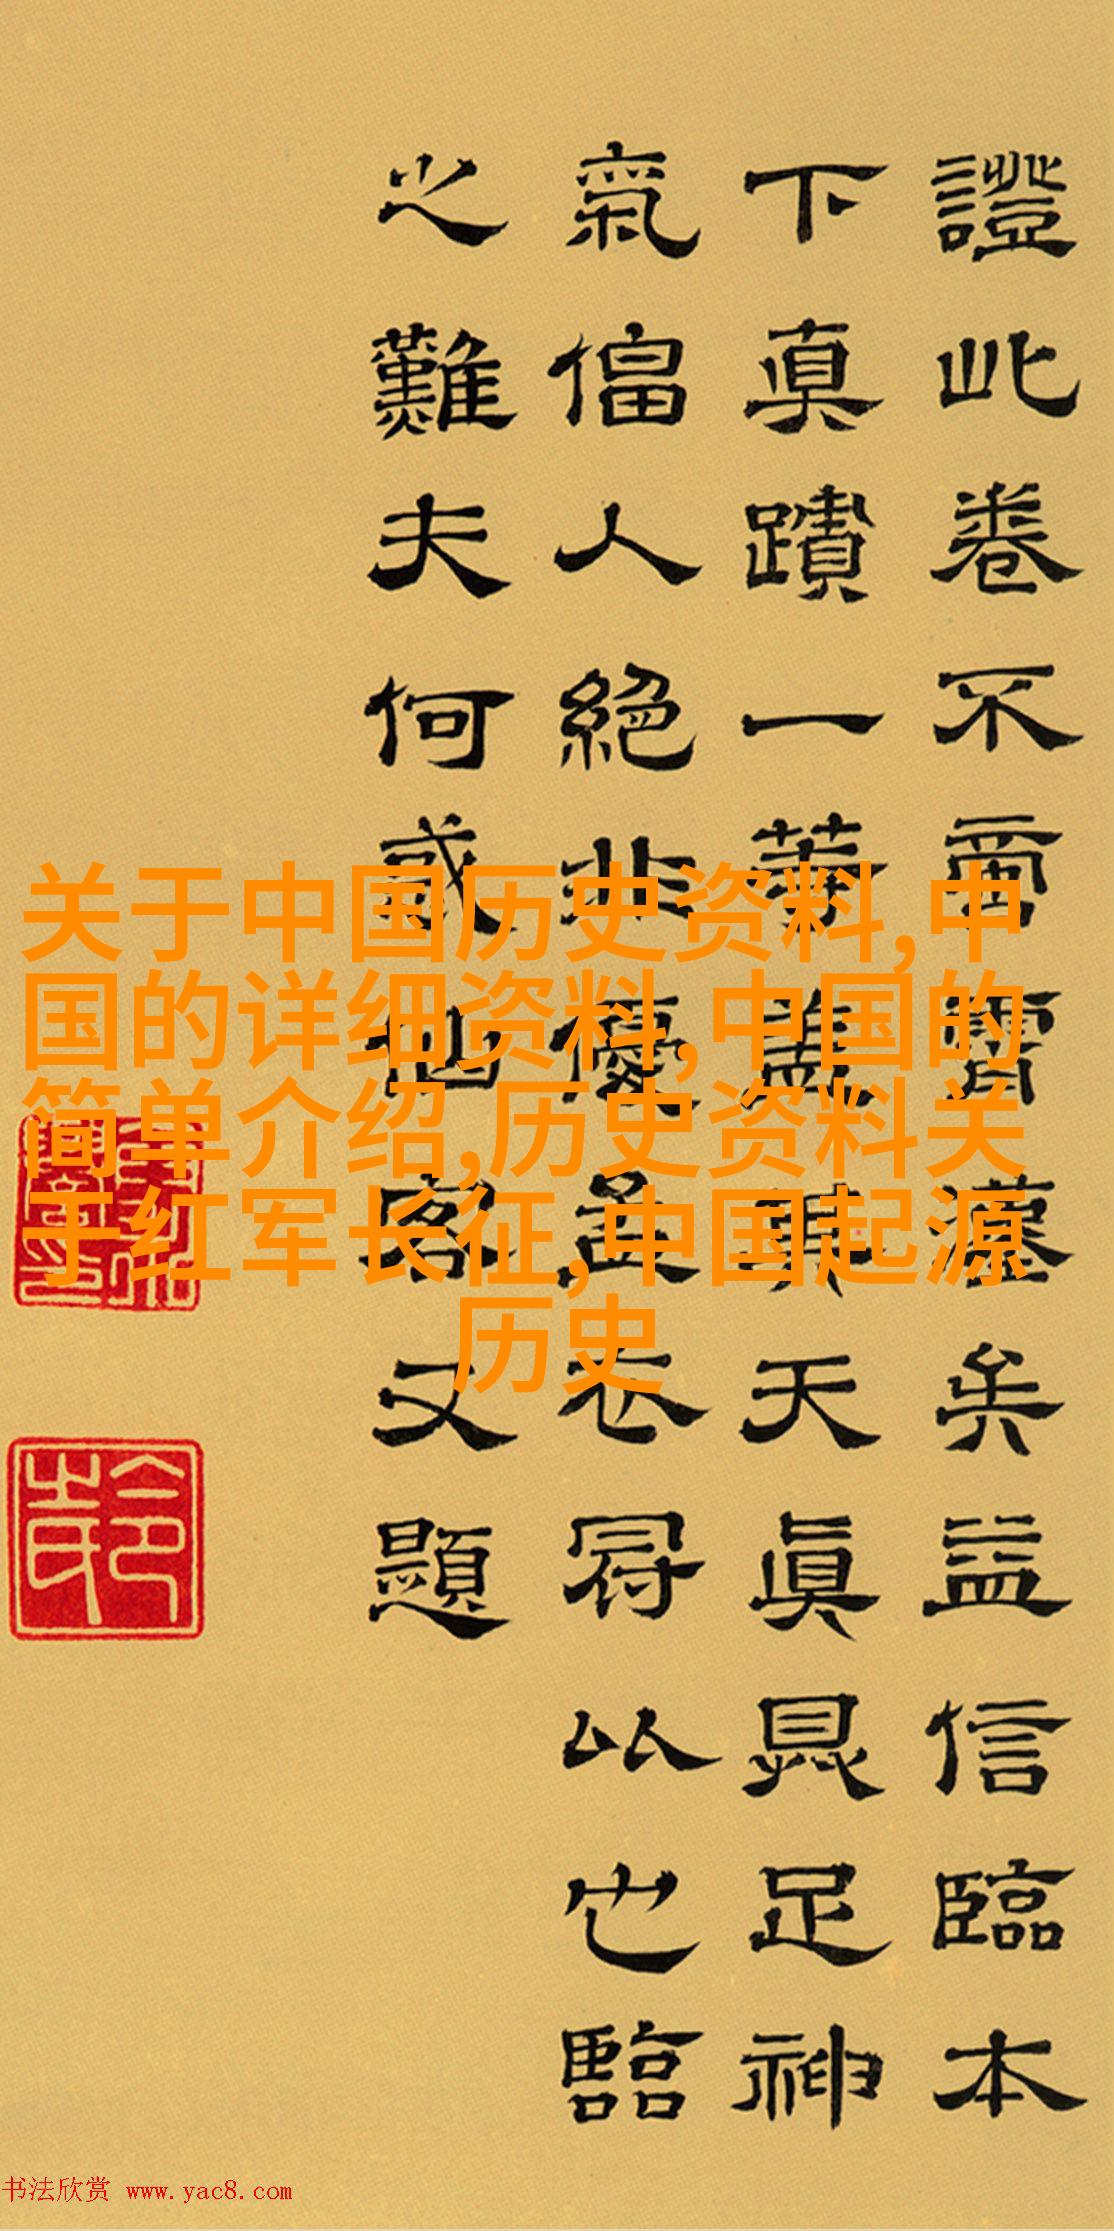 證此卷不啻霄壤矣益信臨本
下真蹟一等蓋其天眞具足神
氣偪人絕非優孟衣冠以也臨
之難夫何或又題
关于中国历史资料,中
国的详细资料,中国的
简单介绍,历史资料关
于红军长征,中国起源
历史
书法欣赏 www.yac8.com